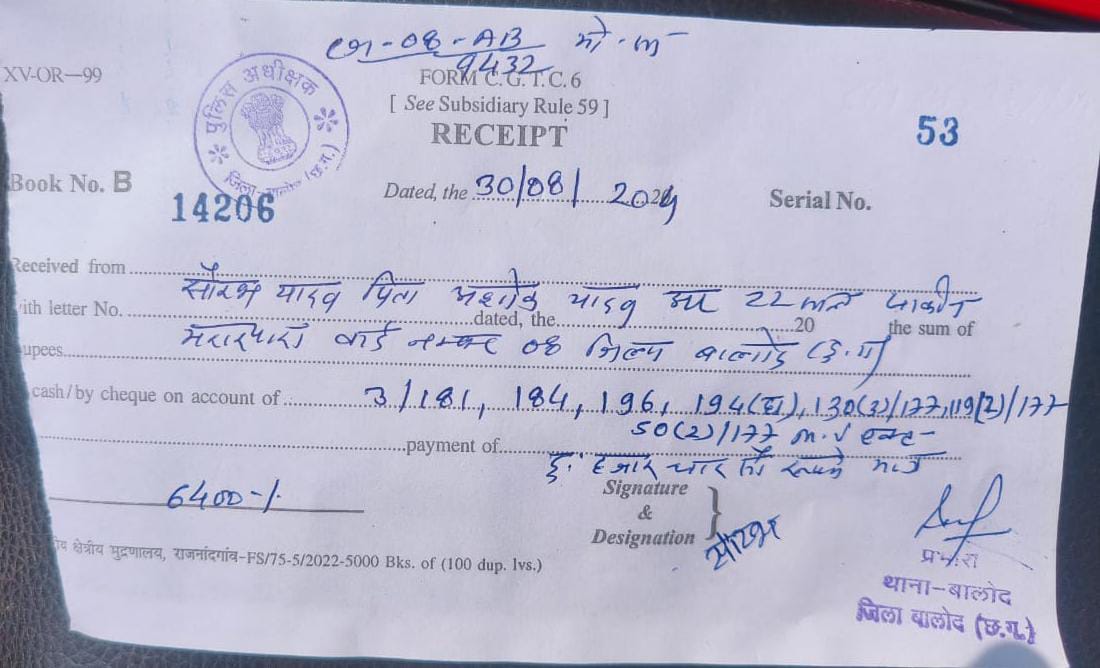 छग-08-AB मो.सा
9432
XV-OR—99
FORM C.G.T.C.6
[ See Subsidiary Rule 59 ]
RECEIPT
53
पुलिस अधीक्षक
जिला (छ.ग.)
Book No. B
14206
Dated, the 30/08/2024
Serial No.
Received from
सौरभ यादव पिता अशोक यादव उम्र 22 साल साकीन
with letter No. dated, the 20 the sum of
मरारपारा वार्ड नम्बर 08 जिला बालोद (छ.ग)
upees
cash/by cheque on account of 3/181, 184, 196, 194(घ), 130(3)/177, 119(2)/177
50(2)/177 m.v एक्ट
payment of
छः हजार चार सौ रूपये
6400-/-
Signature
&
Designation
सौरभ
प्रभारी
थाना-बालोद
जिला बालोद (छ.ग.)
क्षेत्रीय मुद्रणालय, राजनांदगांव-FS/75-5/2022-5000 Bks. of (100 dup. lvs.)